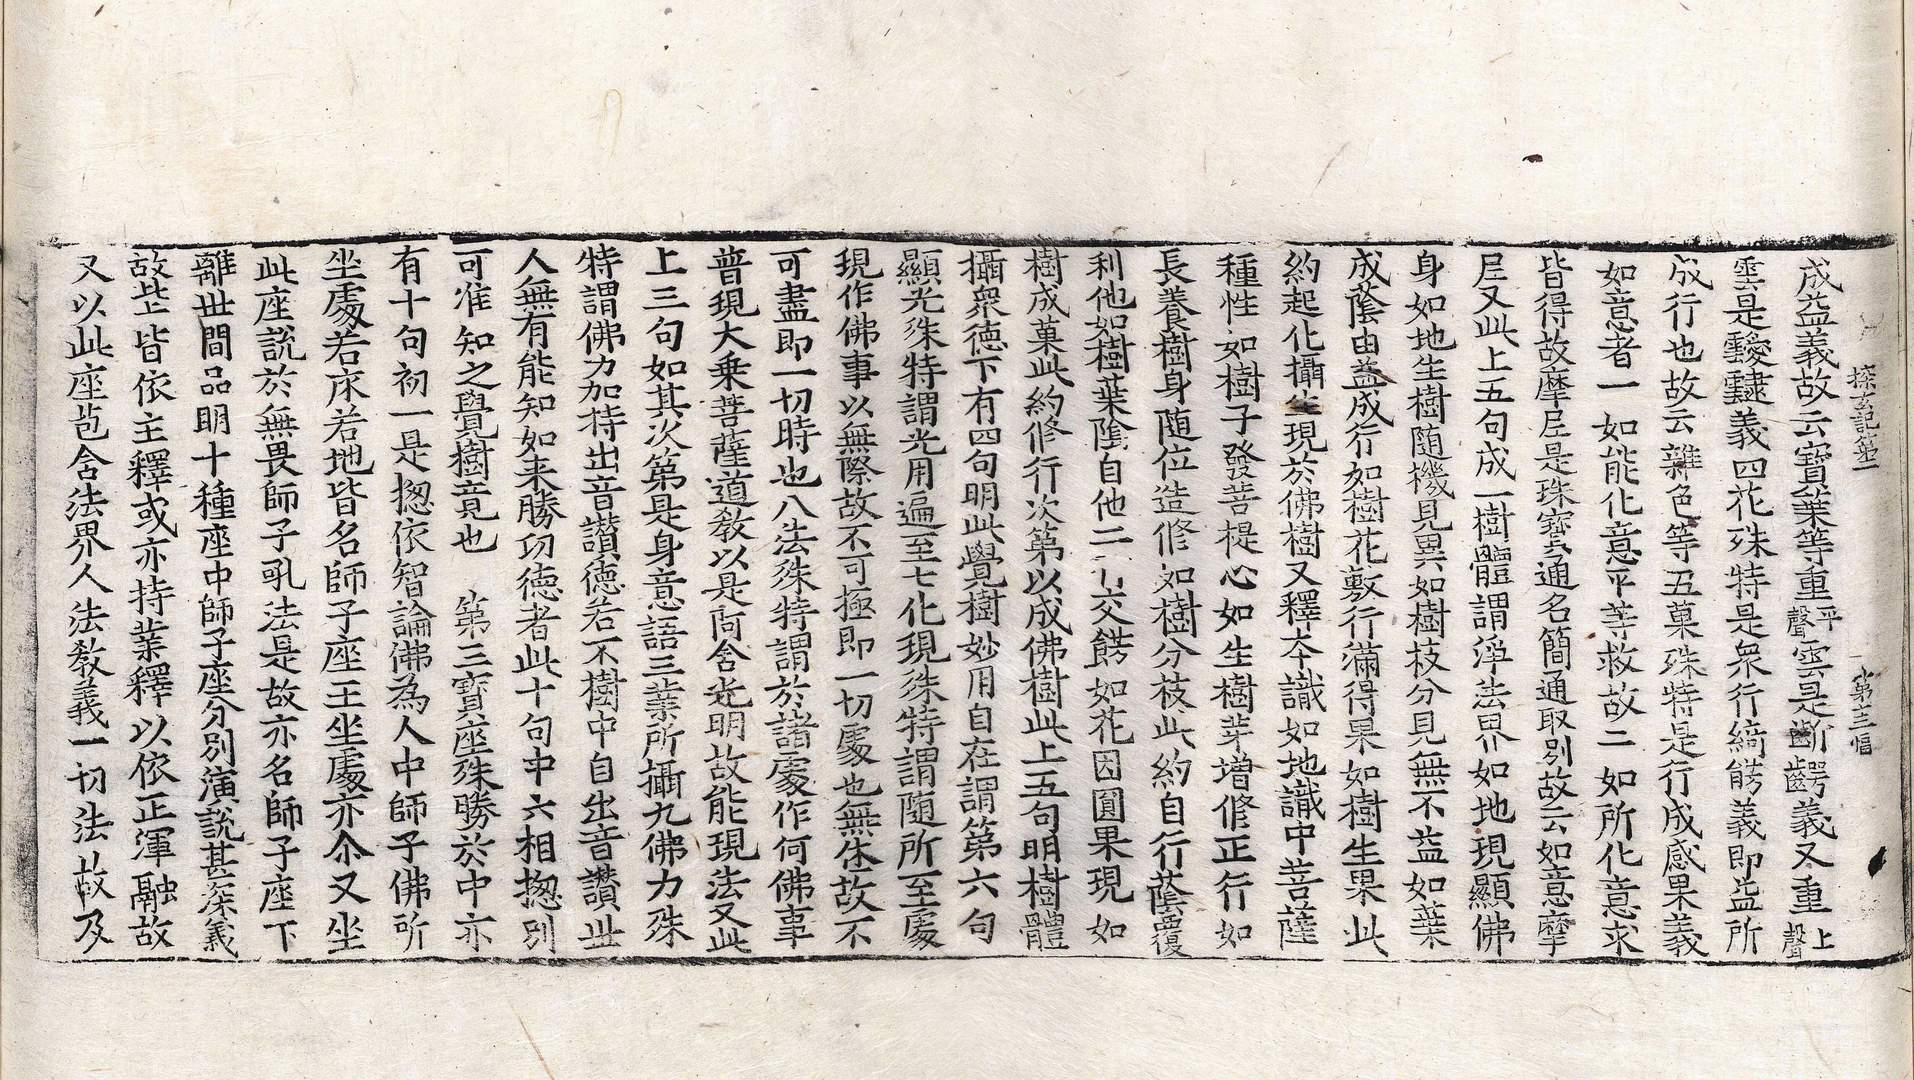 探玄記第二　第三幅
成益義故云寶葉等重平聲雲是齗齶義又重上聲
雲是靉靆義四花殊特是衆行綺髣義即益所
成行也故云雜色等五菓殊特是行成感果義
如意者一如能化意平等救故二如所化意求
皆得故摩尼是珠寶通名簡通取別故云如意摩
尼又此上五句成一樹體謂淨法界如地現顯佛
身如地生樹随機見異如樹枝分見無不益如葉
成蔭由益成行如樹花敷行滿得果如樹生果此
約起化攝生現於佛樹又釋本識如地識中菩薩
種性如樹子發菩提心如生樹芽增修正行如
長養樹身随位造修如樹分枝此約自行蔭覆
利他如樹葉隂自他二行交餝如花因圓果現如
樹成菓此約修行次第以成佛樹此上五句明樹體
攝衆德下有四句明此覺樹妙用自在謂第六句
顯光殊特謂光用遍至七化現殊特謂随所至處
現作佛事以無際故不可極即一切處也無休故不
可盡即一切時也八法殊特謂於諸處作何佛事
普現大乗菩薩道教以是向舍光明故能現法又此
上三句如其次第是身意語三業所攝九佛力殊
特謂佛力加持出音讃德若不樹中自出音讃世
人無有能知如来勝功德者此十句中六相揔別
可准知之覺樹竟也　第三寶座殊勝於中亦
有十句初一是揔依智論佛為人中師子佛所
坐處若床若地皆名師子座王坐處亦尒又坐
此座說於無畏師子吼法是故亦名師子座下
離世間品明十種座中師子座分別演說甚深義
故㘴皆依主釋或亦持業釋以依正渾融故
又以此座苞含法界人法教義一切法故及